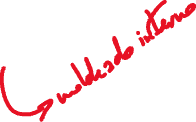 moldeado interno